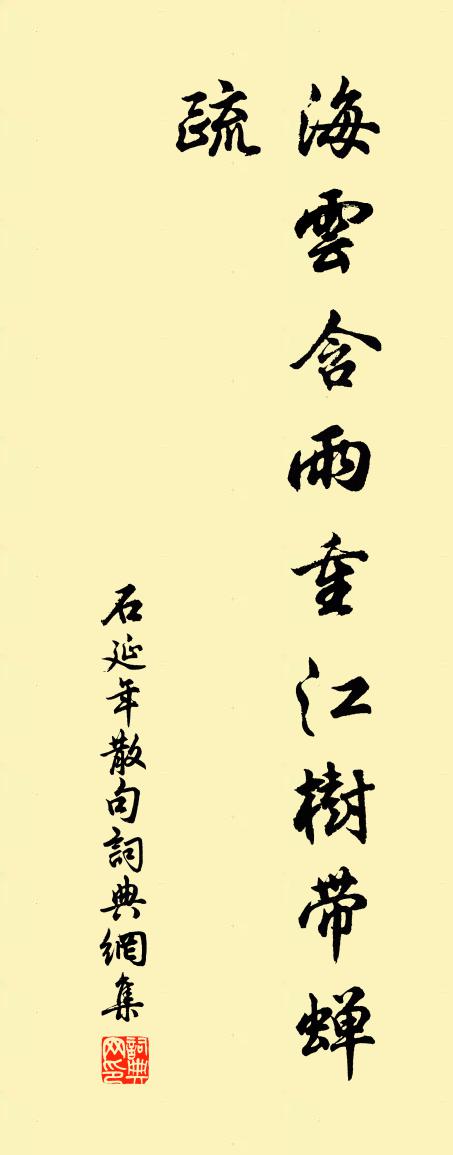 海雲含雨重江樹帶蟬
疏
石延年散句詞典網集
詞典网印